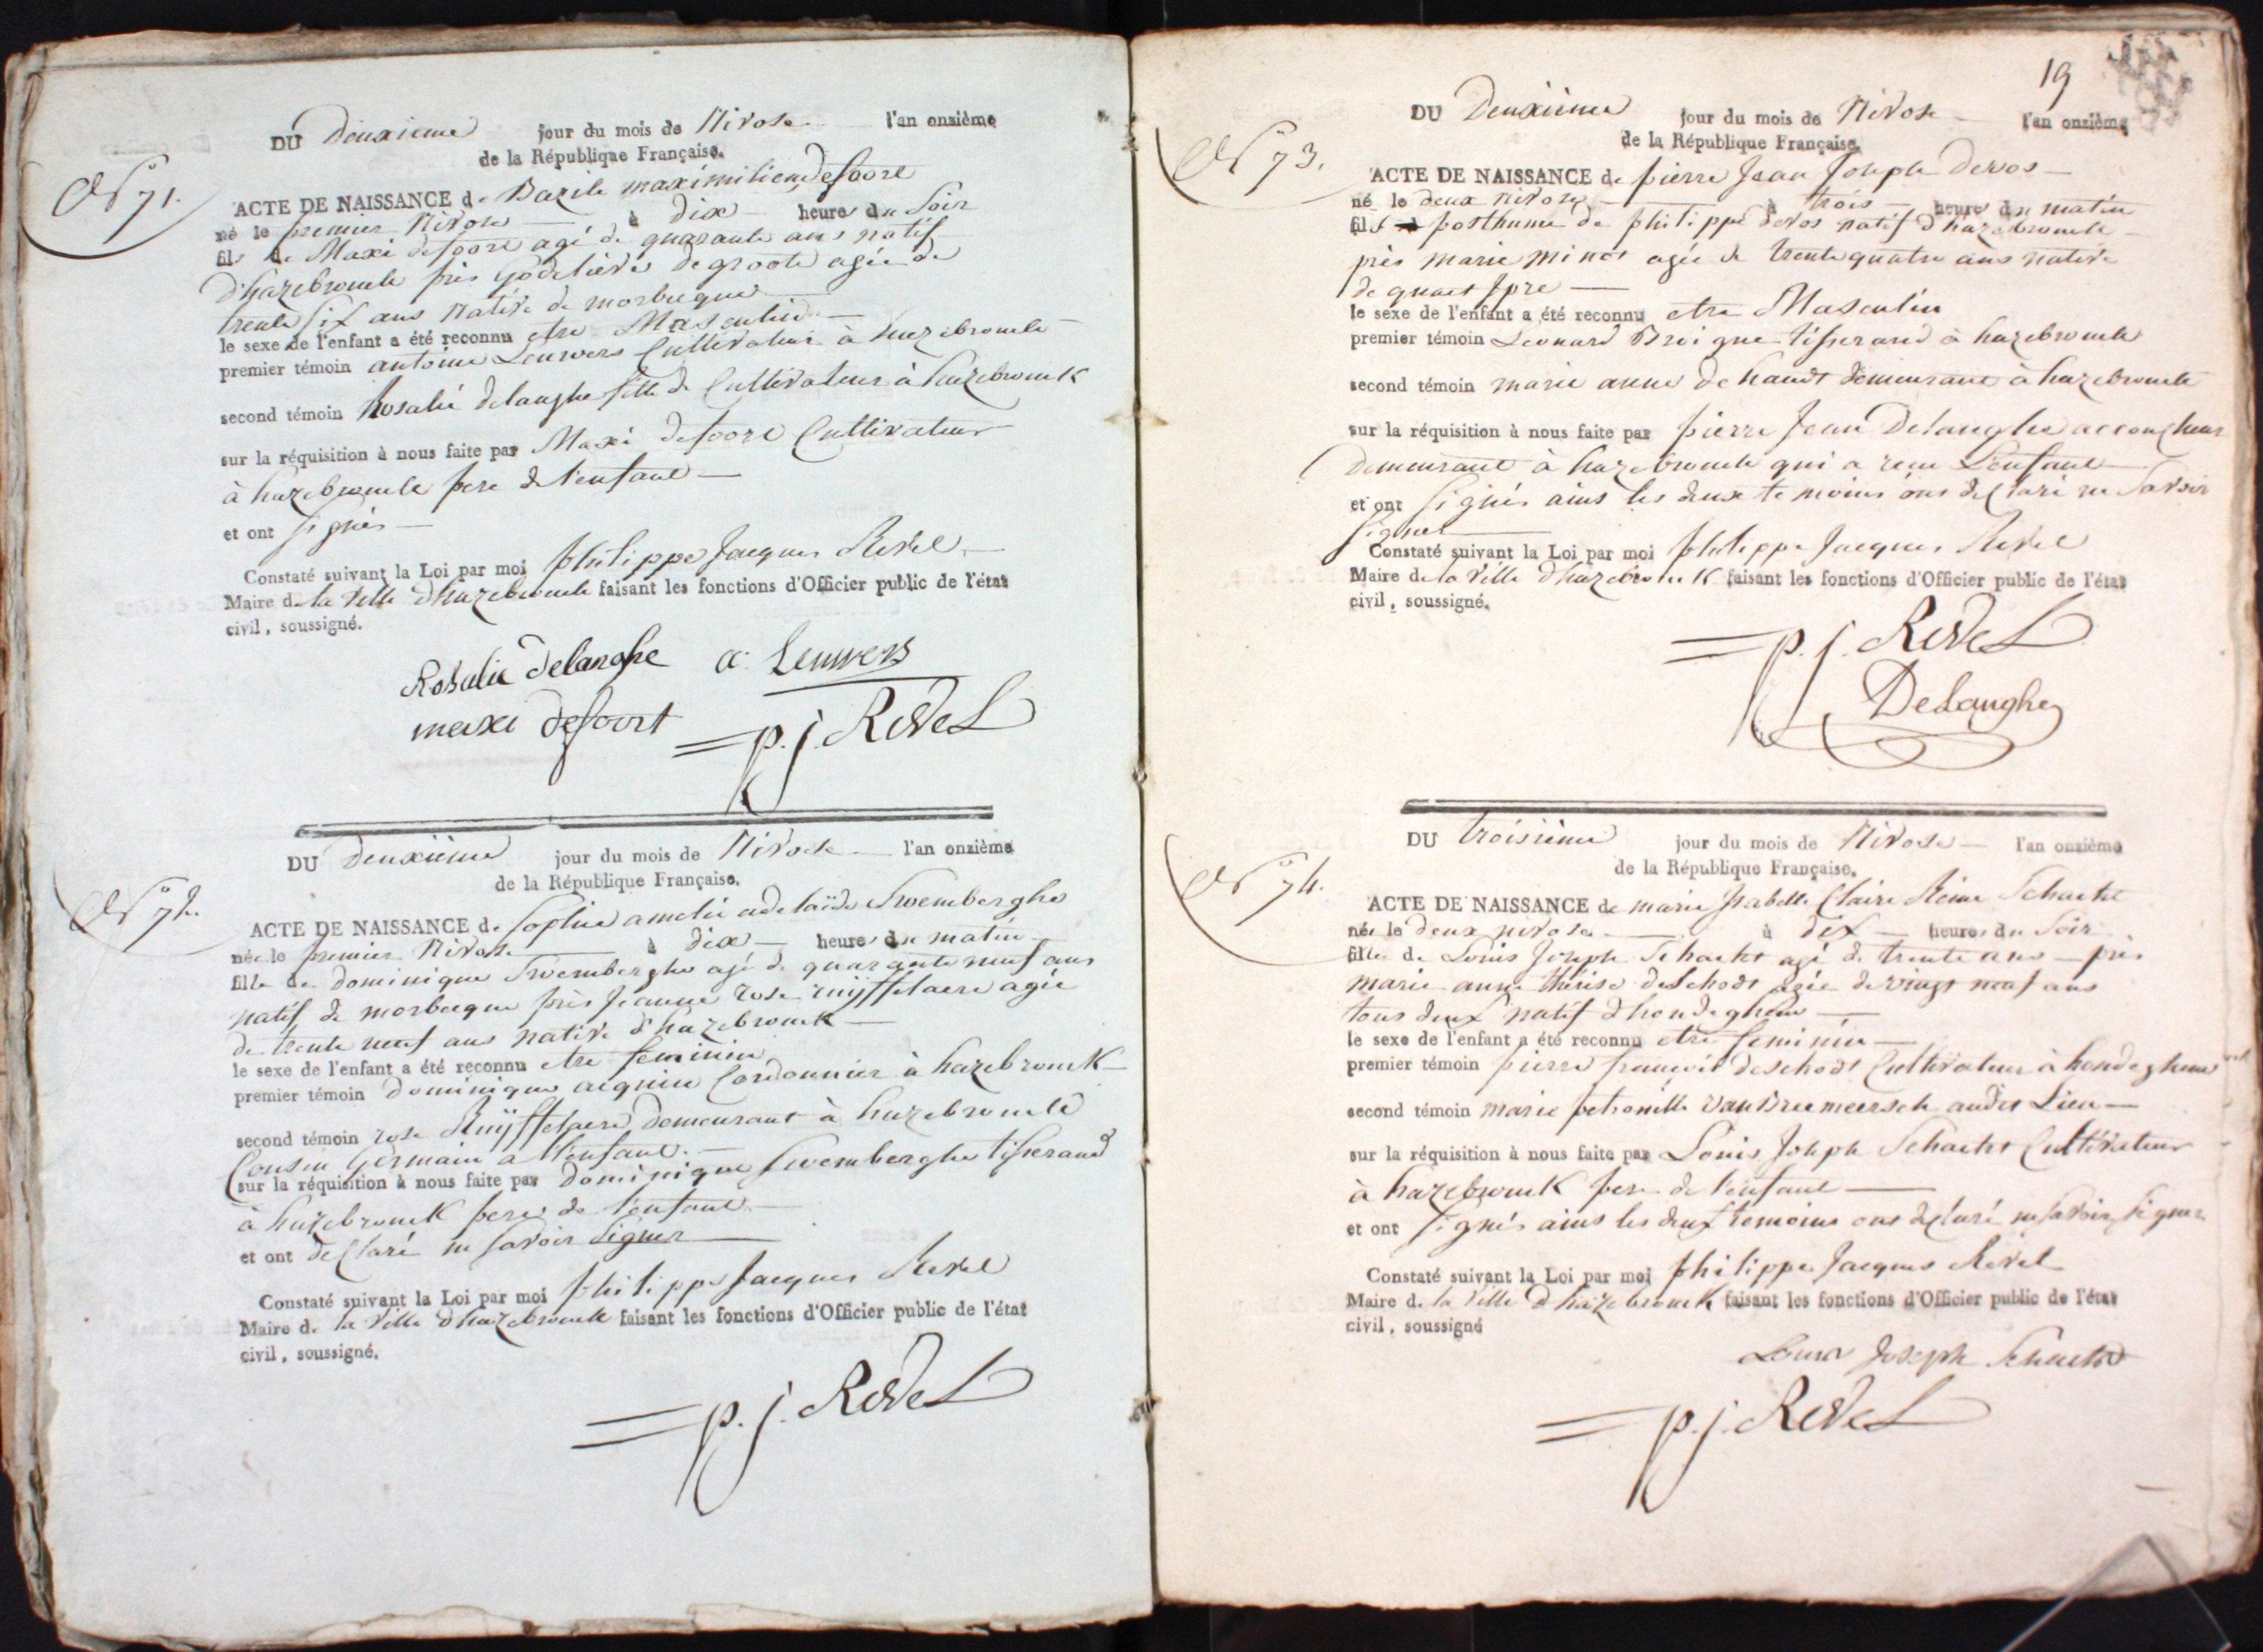 DU Deuxieme jour du mois de Nivose l'an onzième
de la République Française.
N° 71.
ACTE DE NAISSANCE de Bazile maximilien defoort
né le premier Nivose à dix heures du Soir
fils de Maxi defoort agé de quarante ans natif
d'hazebrouck près godelieve degroote agée de
trente six ans Native de morbecque
le sexe de l'enfant a été reconnu etre Masculin
premier témoin antoine Leurwers Cultivateur à hazebrouck
second témoin Rosalie delanghe fille de Cultivateur à hazebrouck
sur la réquisition à nous faite par Maxi defoort Cultivateur
à hazebrouck pere de l'enfant
et ont signés
Constaté suivant la Loi par moi philippe Jacques Revel
Maire de la Ville d'hazebrouck faisant les fonctions d'Officier public de l'état
civil, soussigné.
Rosalie delanghe a: Leurwers
maxi defoort p. j. Revel
DU Deuxieme jour du mois de Nivose l'an onzième
de la République Française.
N° 72.
ACTE DE NAISSANCE de Sophie amelie adelaïde Swemberghe
née le premier Nivose à dix heures du matin
fille de dominique Swemberghe agé de quarante neuf ans
natif de morbecque près jeanne rose ruÿffelaere agée
de trente neuf ans native d'hazebrouck
le sexe de l'enfant a été reconnu etre feminin
premier témoin dominique acquin Cordonnier à hazebrouck
second témoin rose Ruÿffelaere demeurant à hazebrouck
Cousin Germain a l'enfant.
sur la réquisition à nous faite par dominique Swemberghe tisserand
à hazebrouck pere de l'enfant
et ont declaré ne savoir signer
Constaté suivant la Loi par moi philippe Jacques Revel
Maire de la Ville d'hazebrouck faisant les fonctions d'Officier public de l'état
civil, soussigné.
p. j. Revel
19
DU Deuxieme jour du mois de Nivose l'an onzième
de la République Française.
N° 73.
ACTE DE NAISSANCE de pierre Jean Joseph Devos
né le deux nivose à trois heures du matin
fils posthume de philippe devos natif d'hazebrouck
près marie minet agée de trente quatre ans native
de quaet ÿpre
le sexe de l'enfant a été reconnu etre Masculin
premier témoin Leonard Broigne tisserand à hazebrouck
second témoin marie anne dehandt demeurant à hazebrouck
sur la réquisition à nous faite par pierre Jean Delanghe accoucheur
demeurant à hazebrouck qui a recu L'enfant
et ont signés ains les deux temoins ons declaré ne Savoir
signer
Constaté suivant la Loi par moi philippe Jacques Revel
Maire de la Ville d'hazebrouck faisant les fonctions d'Officier public de l'état
civil, soussigné.
p. j. Revel
DeLanghe
DU troisieme jour du mois de Nivose l'an onzième
de la République Française.
N° 74.
ACTE DE NAISSANCE de marie Isabelle Claire Reine Schacht
née le deux nivose à dix heures du Soir
fille de Louis Joseph Schacht agé de trente ans près
marie anne thérèse deschodt agée de vingt neuf ans
tous deux natif d'hondeghem
le sexe de l'enfant a été reconnu etre feminin
premier témoin pierre françois deschodt Cultivateur à hondeghem
second témoin marie petronille Van Breemeersch audit Lieu
sur la réquisition à nous faite par Louis Joseph Schacht Cultivateur
à hazebrouck pere de l'enfant
et ont signés ains les deux temoins ons declaré ne savoir signer
Constaté suivant la Loi par moi philippe Jacques Revel
Maire de la Ville d'hazebrouck faisant les fonctions d'Officier public de l'état
civil, soussigné
Louis Joseph Schacht
p. j. Revel